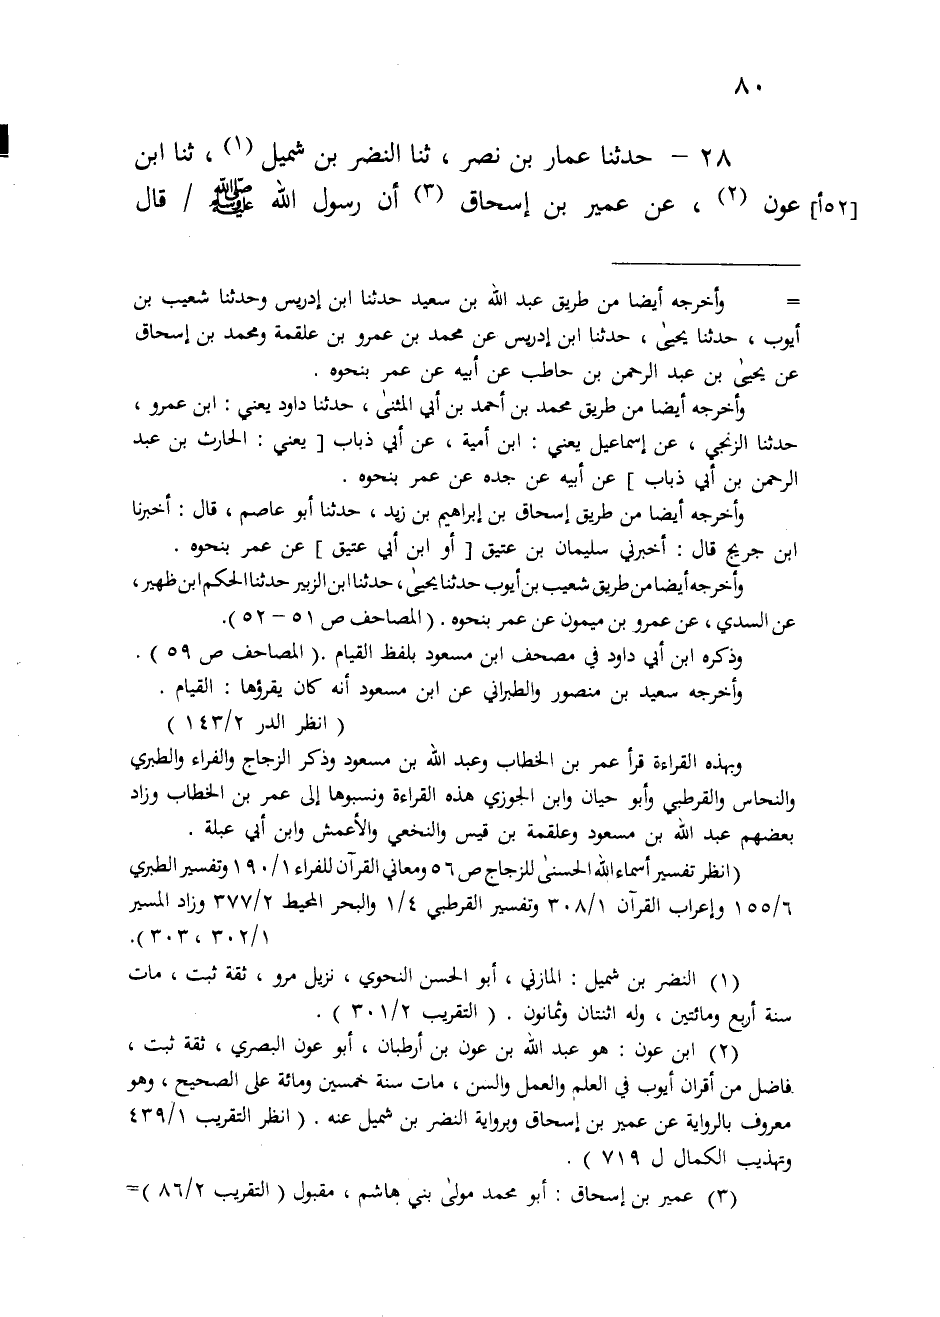 ٨٠
٢٨ – حدثنا عمار بن نصر ، ثنا النضر بن شميل (١) ، ثنا ابن
[٥٢أ] عون (٢) ، عن عمير بن إسحاق (٣) أن رسول الله ﷺ / قال
= وأخرجه أيضا من طريق عبد الله بن سعيد حدثنا ابن إدريس وحدثنا شعيب بن
أيوب ، حدثنا يحيىٰ ، حدثنا ابن إدريس عن محمد بن عمرو بن علقمة ومحمد بن إسحاق
عن يحيىٰ بن عبد الرحمن بن حاطب عن أبيه عن عمر بنحوه .
وأخرجه أيضا من طريق محمد بن أحمد بن أبي المثنىٰ ، حدثنا داود يعني : ابن عمرو ،
حدثنا الزنجي ، عن إسماعيل يعني : ابن أمية ، عن أبي ذباب [ يعني : الحارث بن عبد
الرحمن بن أبي ذباب ] عن أبيه عن جده عن عمر بنحوه .
وأخرجه أيضا من طريق إسحاق بن إبراهيم بن زيد ، حدثنا أبو عاصم ، قال : أخبرنا
ابن جريج قال : أخبرني سليمان بن عتيق [ أو ابن أبي عتيق ] عن عمر بنحوه .
وأخرجه أيضا من طريق شعيب بن أيوب حدثنا يحيىٰ ، حدثنا ابن الزبير حدثنا الحكم ابن ظهير ،
عن السدي ، عن عمرو بن ميمون عن عمر بنحوه . ( المصاحف ص ٥١ – ٥٢ ).
وذكره ابن أبي داود في مصحف ابن مسعود بلفظ القيام .( المصاحف ص ٥٩ ) .
وأخرجه سعيد بن منصور والطبراني عن ابن مسعود أنه كان يقرؤها : القيام .
( انظر الدر ١٤٣/٢ )
وبهذه القراءة قرأ عمر بن الخطاب وعبد الله بن مسعود وذكر الزجاج والفراء والطبري
والنحاس والقرطبي وأبو حيان وابن الجوزي هذه القراءة ونسبوها إلى عمر بن الخطاب وزاد
بعضهم عبد الله بن مسعود وعلقمة بن قيس والنخعي والأعمش وابن أبي عبلة .
( انظر تفسير أسماء الله الحسنىٰ للزجاج ص ٥٦ ومعاني القرآن للفراء ١٩٠/١ وتفسير الطبري
١٥٥/٦ وإعراب القرآن ٣٠٨/١ وتفسير القرطبي ١/٤ والبحر المحيط ٣٧٧/٢ وزاد المسير
٣٠٢/١ ، ٣٠٣ ).
(١) النضر بن شميل : المازني ، أبو الحسن النحوي ، نزيل مرو ، ثقة ثبت ، مات
سنة أربع ومائتين ، وله اثنتان وثمانون . ( التقريب ٣٠١/٢ ) .
(٢) ابن عون : هو عبد الله بن عون بن أرطبان ، أبو عون البصري ، ثقة ثبت ،
فاضل من أقران أيوب في العلم والعمل والسن ، مات سنة خمسين ومائة على الصحيح ، وهو
معروف بالرواية عن عمير بن إسحاق وبرواية النضر بن شميل عنه . ( انظر التقريب ٤٣٩/١
وتهذيب الكمال ل ٧١٩ ) .
(٣) عمير بن إسحاق : أبو محمد مولىٰ بني هاشم ، مقبول ( التقريب ٨٦/٢ )=